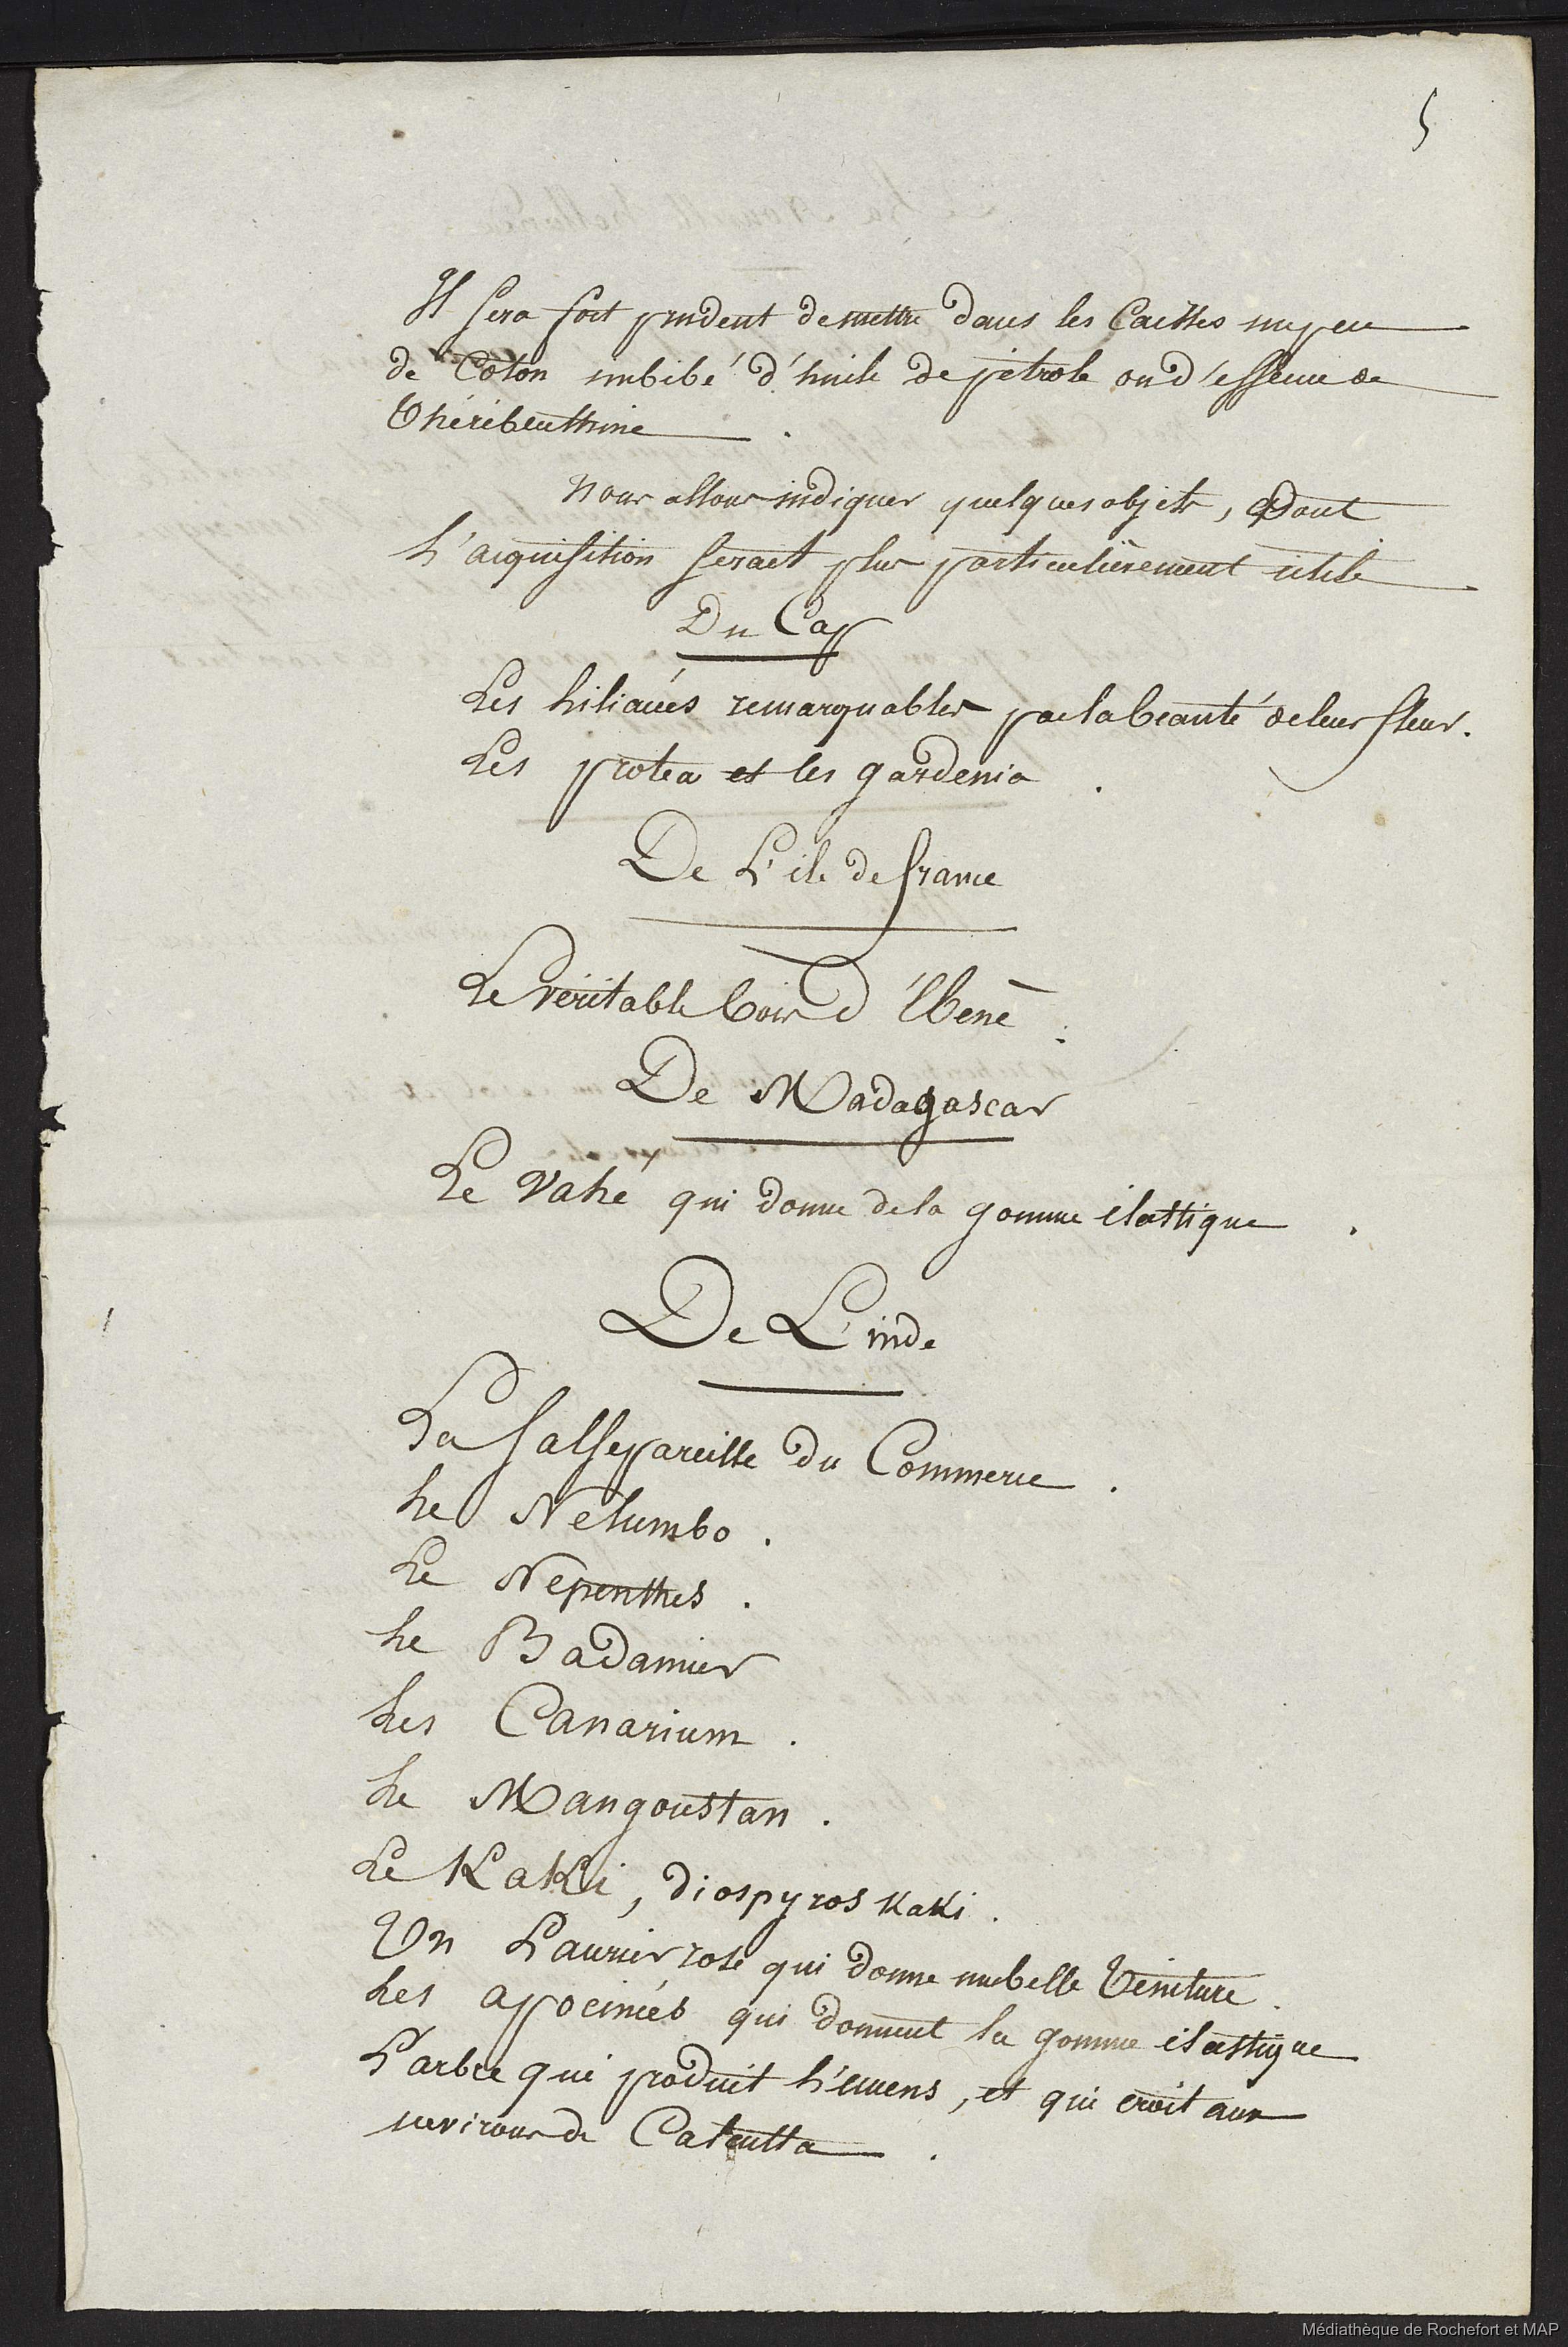 5
Il sera fort prudent de mettre dans les Caisses un peu
de Coton imbibé d'huile de pétrole ou d'essence de
Théribenthine.
Nous allons indiquer quelques objets, dont
L'acquisition serait plus particulièrement utile
Du Cap
Les Liliacées remarquables par la beauté de leur fleur.
Les protea et les gardenia.
De L'ile de france
Le véritable bois d'Ebene.
De Madagascar
Le Vahé qui donne de la gomme élastique.
De L'inde
La Salsepareille du Commerce.
Le Nelumbo.
Le Nepenthes.
Le Badamier
Les Canarium.
Le Mangoustan.
Le Kaki, diospyros Kaki.
Un Laurier rose qui donne une belle Teinture.
Les apocinées qui donnent la gomme élastique
L'arbre qui produit L'encens, et qui croit aux
environs de Calcutta.
Médiathèque de Rochefort et MAP